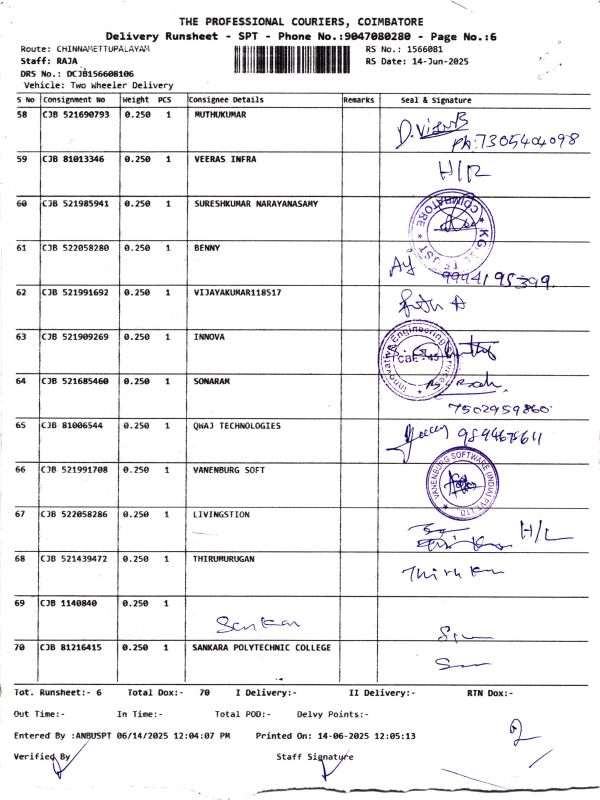 THE PROFESSIONAL COURIERS, COIMBATORE
Delivery Runsheet - SPT - Phone No.:9047080280 - Page No.:6
Route: CHINNAMETTUPALAYAM RS No.: 1566081
Staff: RAJA RS Date: 14-Jun-2025
DRS No.: DCJB156608106
Vehicle: Two Wheeler Delivery
S No Consignment No Weight PCS Consignee Details Remarks Seal & Signature
58 CJB 521690793 0.250 1 MUTHUKUMAR
Ph: 7305404098
59 CJB 81013346 0.250 1 VEERAS INFRA H/R
60 CJB 521985941 0.250 1 SURESHKUMAR NARAYANASAMY
COIMBATORE
61 CJB 522058280 0.250 1 BENNY
9994195399
62 CJB 521991692 0.250 1 VIJAYAKUMAR118517
63 CJB 521909269 0.250 1 INNOVA
Innovative Engineering Services
CBE - 45
64 CJB 521685460 0.250 1 SONARAM
7502959860
65 CJB 81006544 0.250 1 QWAJ TECHNOLOGIES
66 CJB 521991708 0.250 1 VANENBURG SOFT
VANENBURG SOFTWARE (INDIA) PVT. LTD.
67 CJB 522058286 0.250 1 LIVINGSTION
68 CJB 521439472 0.250 1 THIRUMURUGAN
69 CJB 1140840 0.250 1
70 CJB 81216415 0.250 1 SANKARA POLYTECHNIC COLLEGE
Tot. Runsheet:- 6 Total Dox:- 70 I Delivery:- II Delivery:- RTN Dox:-
Out Time:- In Time:- Total POD:- Delvy Points:-
Entered By :ANBUSPT 06/14/2025 12:04:07 PM Printed On: 14-06-2025 12:05:13
Verified By Staff Signature